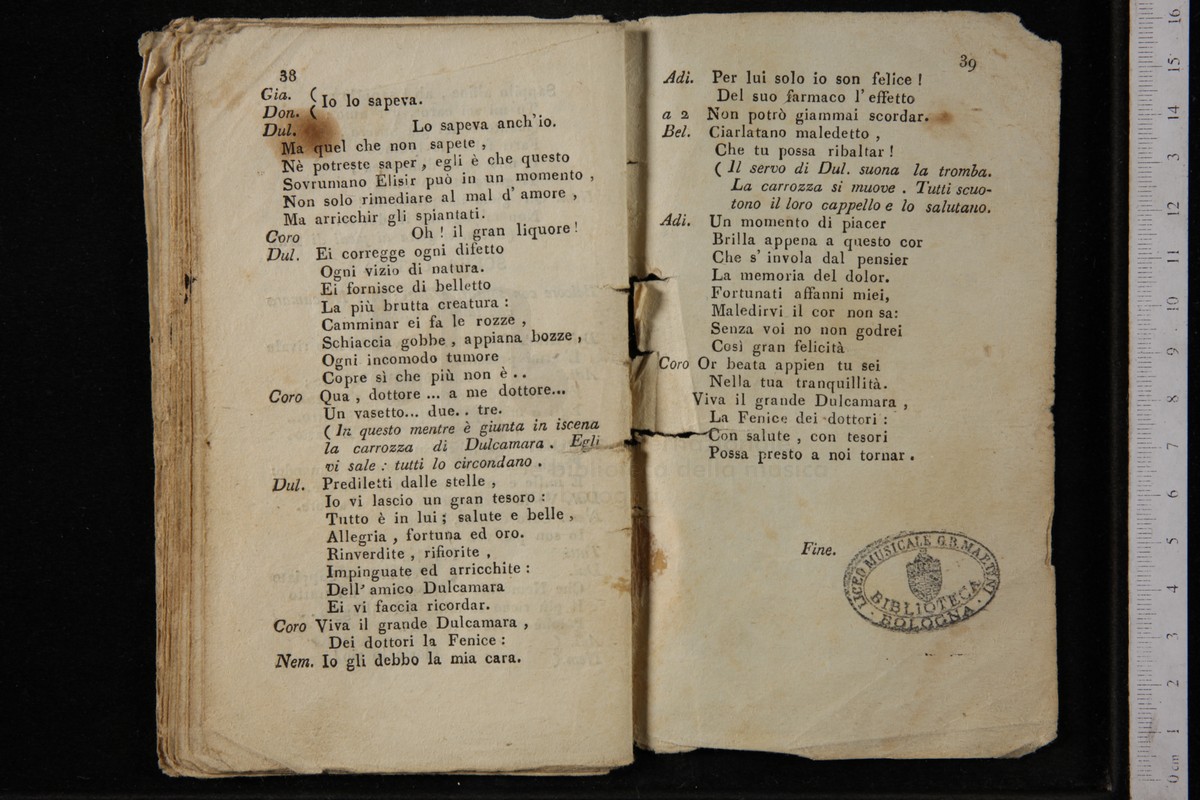 38
Gia. (
Io lo sapeva.
Don. (
Dul. Lo sapeva anch'io.
Ma quel che non sapete ,
Nè potreste saper , egli è che questo
Sovrumano Elisir può in un momento ,
Non solo rimediare al mal d' amore ,
Ma arricchir gli spiantati.
Coro Oh ! il gran liquore !
Dul. Ei corregge ogni difetto
Ogni vizio di natura.
Ei fornisce di belletto
La più brutta creatura :
Camminar ei fa le rozze ,
Schiaccia gobbe , appiana bozze ,
Ogni incomodo tumore
Copre sì che più non è . .
Coro Qua , dottore ... a me dottore...
Un vasetto... due. . tre.
( In questo mentre è giunta in iscena
la carrozza di Dulcamara . Egli
vi sale : tutti lo circondano .
Dul. Prediletti dalle stelle ,
Io vi lascio un gran tesoro :
Tutto è in lui ; salute e belle ,
Allegria , fortuna ed oro.
Rinverdite , rifiorite ,
Impinguate ed arricchite :
Dell' amico Dulcamara
Ei vi faccia ricordar.
Coro Viva il grande Dulcamara ,
Dei dottori la Fenice :
Nem. Io gli debbo la mia cara.
39
Adi. Per lui solo io son felice !
Del suo farmaco l' effetto
a 2 Non potrò giammai scordar.
Bel. Ciarlatano maledetto ,
Che tu possa ribaltar !
( Il servo di Dul. suona la tromba.
La carrozza si muove . Tutti scuo-
tono il loro cappello e lo salutano.
Adi. Un momento di piacer
Brilla appena a questo cor
Che s' invola dal pensier
La memoria del dolor.
Fortunati affanni miei,
Maledirvi il cor non sa:
Senza voi no non godrei
Così gran felicità
Coro Or beata appien tu sei
Nella tua tranquillità.
Viva il grande Dulcamara ,
La Fenice dei dottori :
Con salute , con tesori
Possa presto a noi tornar .
biblioteca della musica
Fine.
LICEO MUSICALE G. B. MARTINI
BIBLIOTECA
BOLOGNA
16
15
14
13
12
11
10
9
8
7
6
5
4
3
2
1
0 cm